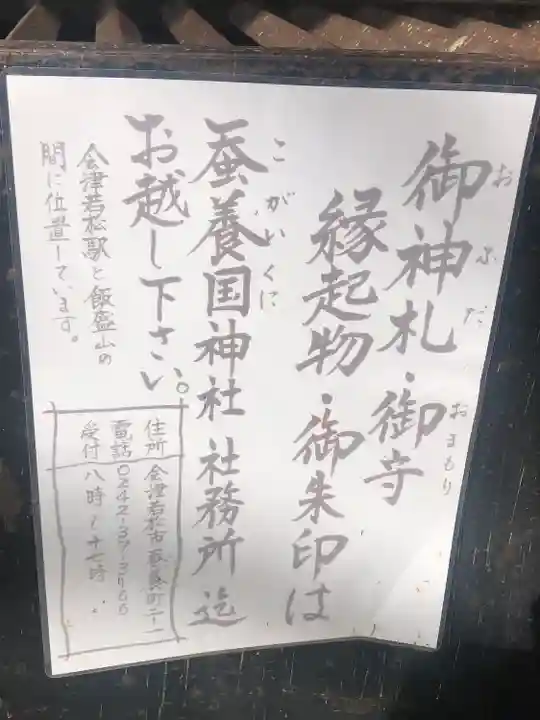 御神札・御守
おふだ
おまもり
縁起物・御朱印は
蚕養国神社 社務所迄
こがいくに
お越し下さい。
会津若松駅と飯盛山の
間に位置しています。
住所 会津若松市蚕養町二-一
電話 0242-37-3466
受付 八時～十七時